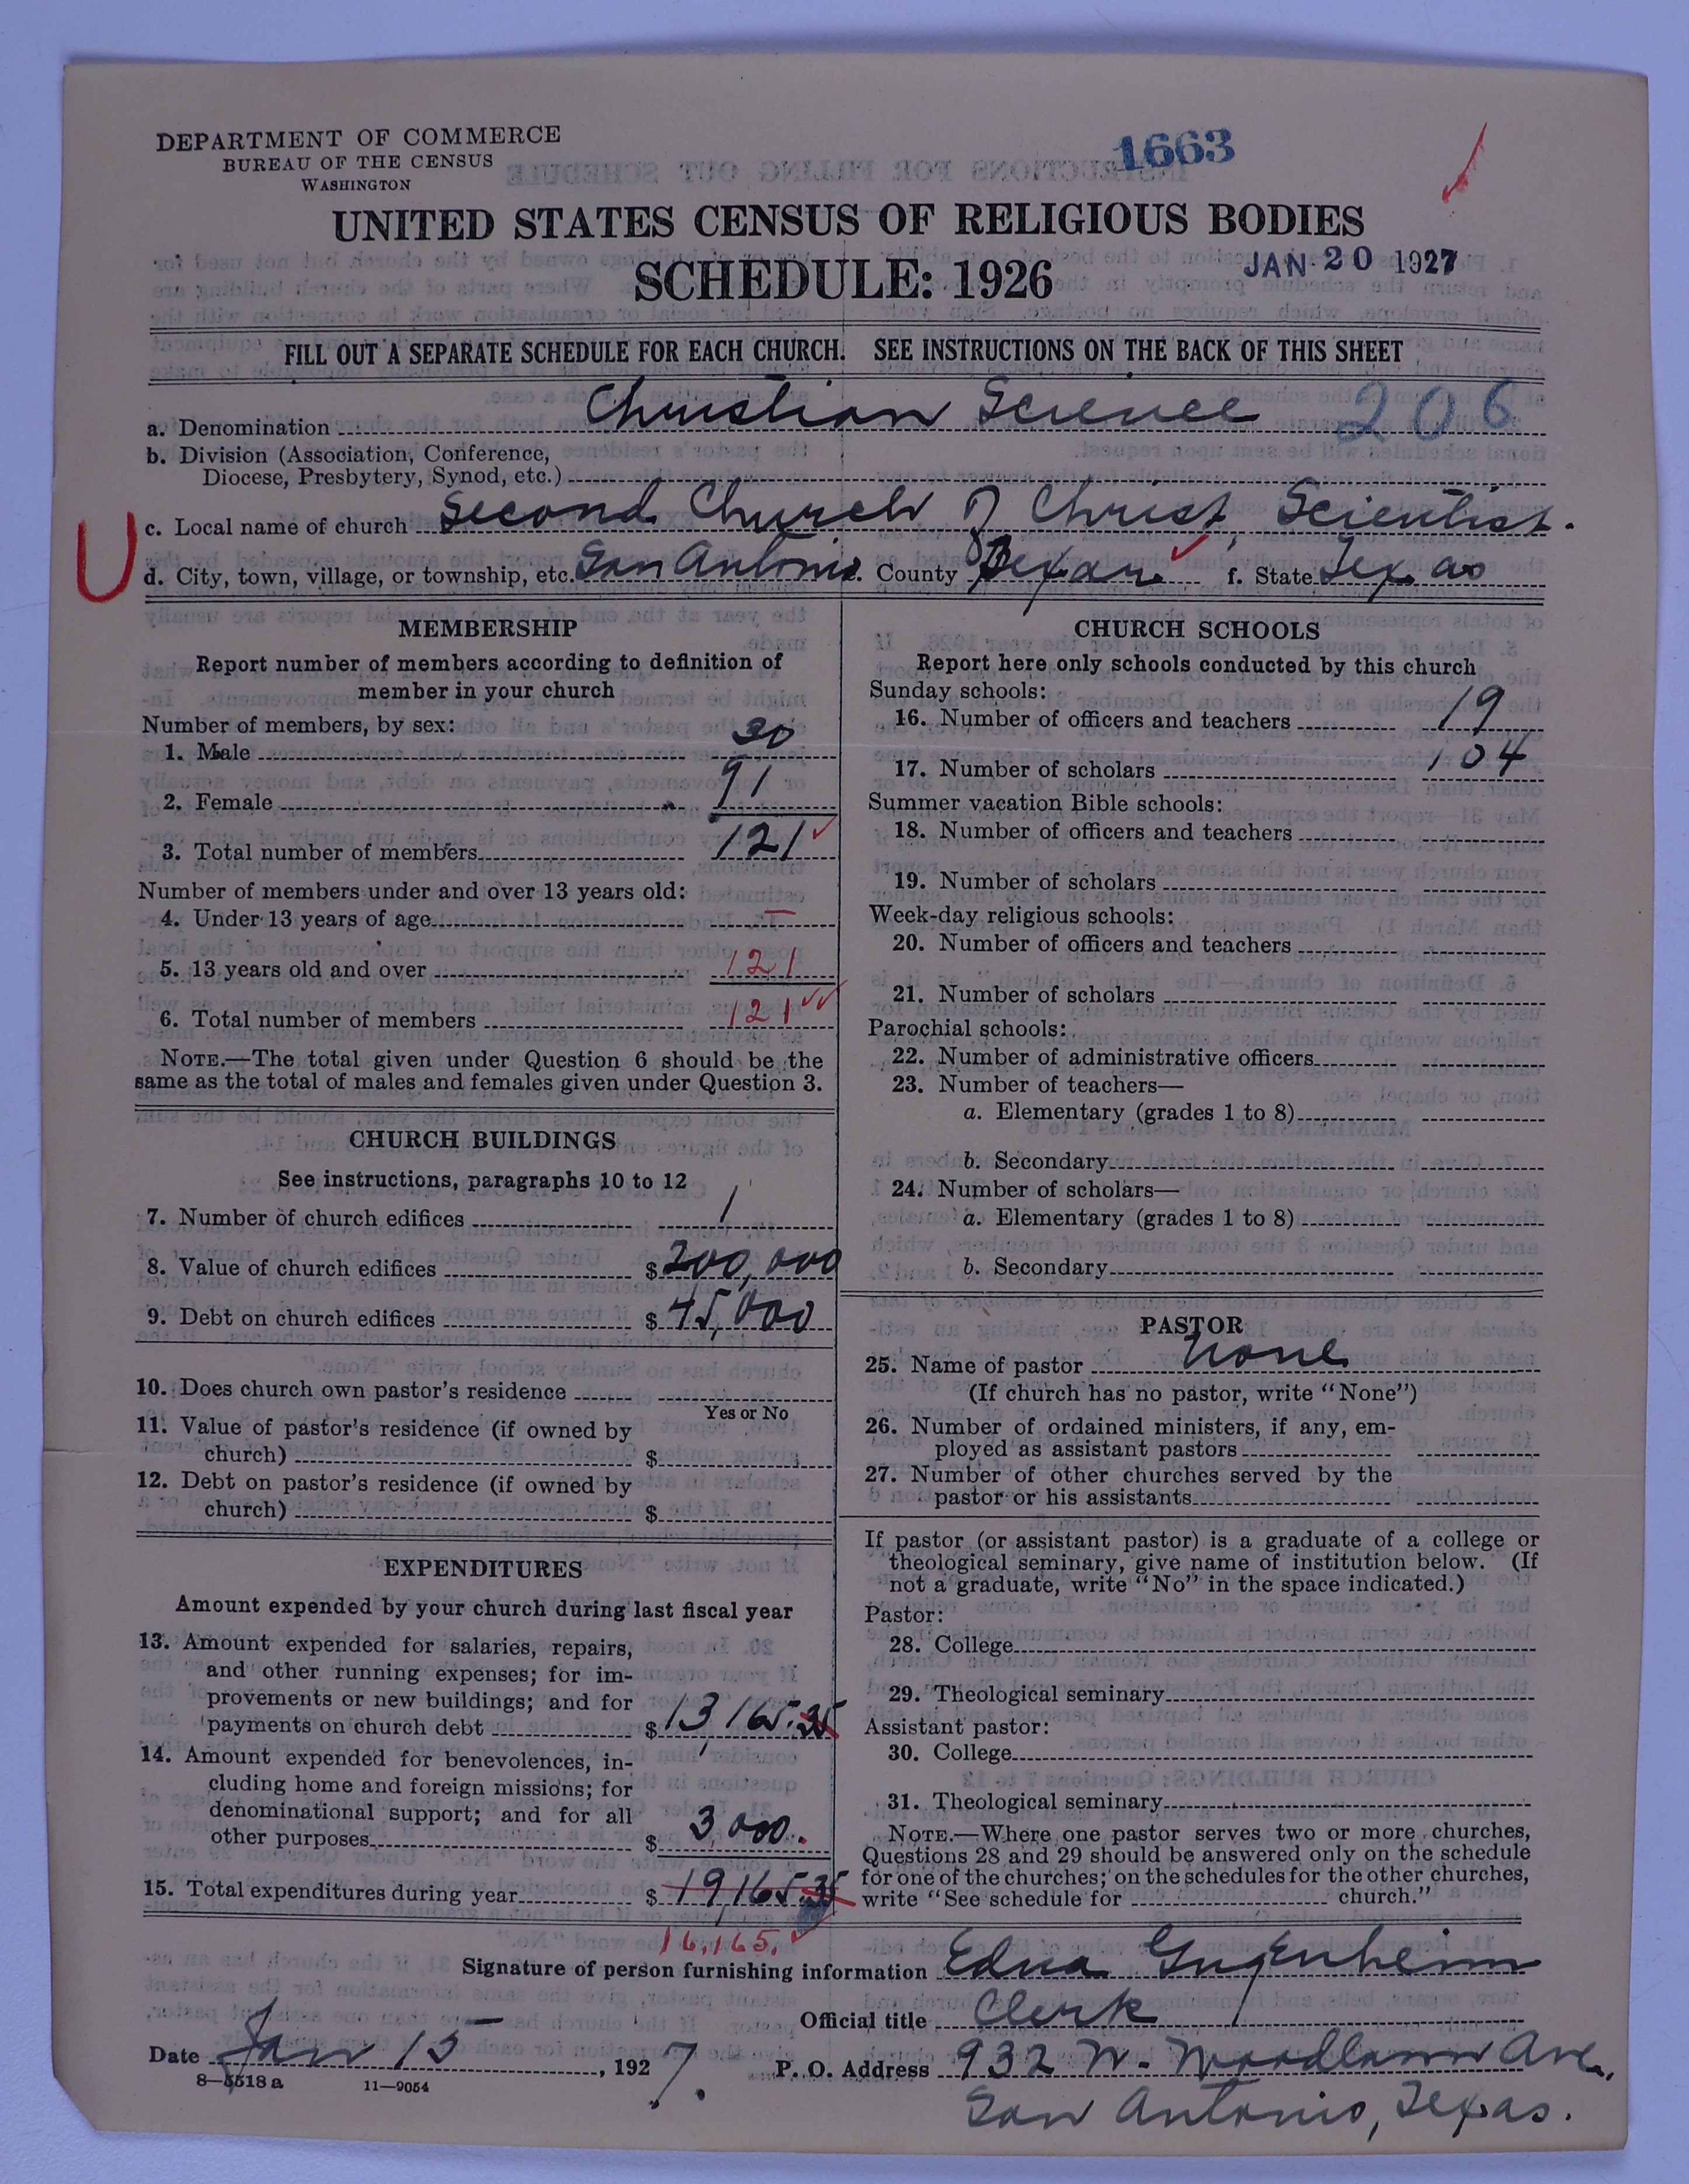 DEPARTMENT OF COMMERCE
BUREAU OF THE CENSUS
WASHINGTON
1663
UNITED STATES CENSUS OF RELIGIOUS BODIES
SCHEDULE: 1926
JAN 20 1927
FILL OUT A SEPARATE SCHEDULE FOR EACH CHURCH. SEE INSTRUCTIONS ON THE BACK OF THIS SHEET
a. Denomination Christian Science 206
b. Division (Association, Conference,
Diocese, Presbytery, Synod, etc.)
U
c. Local name of church Second Church of Christ, Scientist.
d. City, town, village, or township, etc. San Antonio. County Bexar f. State Texas
MEMBERSHIP
Report number of members according to definition of
member in your church
Number of members, by sex:
1. Male 30
2. Female 91
3. Total number of members 121
Number of members under and over 13 years old:
4. Under 13 years of age —
5. 13 years old and over 121
6. Total number of members 121
NOTE.—The total given under Question 6 should be the
same as the total of males and females given under Question 3.
CHURCH BUILDINGS
See instructions, paragraphs 10 to 12
7. Number of church edifices 1
8. Value of church edifices $200,000
9. Debt on church edifices $45,000
10. Does church own pastor's residence
Yes or No
11. Value of pastor's residence (if owned by
church) $
12. Debt on pastor's residence (if owned by
church) $
EXPENDITURES
Amount expended by your church during last fiscal year
13. Amount expended for salaries, repairs,
and other running expenses; for im-
provements or new buildings; and for
payments on church debt $13,165.35
14. Amount expended for benevolences, in-
cluding home and foreign missions; for
denominational support; and for all
other purposes $3,000.
15. Total expenditures during year $19,165.35
16,165.
CHURCH SCHOOLS
Report here only schools conducted by this church
Sunday schools:
16. Number of officers and teachers 19
17. Number of scholars 104
Summer vacation Bible schools:
18. Number of officers and teachers
19. Number of scholars
Week-day religious schools:
20. Number of officers and teachers
21. Number of scholars
Parochial schools:
22. Number of administrative officers
23. Number of teachers—
a. Elementary (grades 1 to 8)
b. Secondary
24. Number of scholars—
a. Elementary (grades 1 to 8)
b. Secondary
PASTOR
25. Name of pastor None
(If church has no pastor, write "None")
26. Number of ordained ministers, if any, em-
ployed as assistant pastors
27. Number of other churches served by the
pastor or his assistants
If pastor (or assistant pastor) is a graduate of a college or
theological seminary, give name of institution below. (If
not a graduate, write "No" in the space indicated.)
Pastor:
28. College
29. Theological seminary
Assistant pastor:
30. College
31. Theological seminary
NOTE.—Where one pastor serves two or more churches,
Questions 28 and 29 should be answered only on the schedule
for one of the churches; on the schedules for the other churches,
write "See schedule for church."
Signature of person furnishing information Edna Gugenheim
Official title Clerk
Date Jan 15, 1927. P. O. Address 932 W. Woodlawn Ave,
8—5518 a 11—9054
San Antonio, Texas.